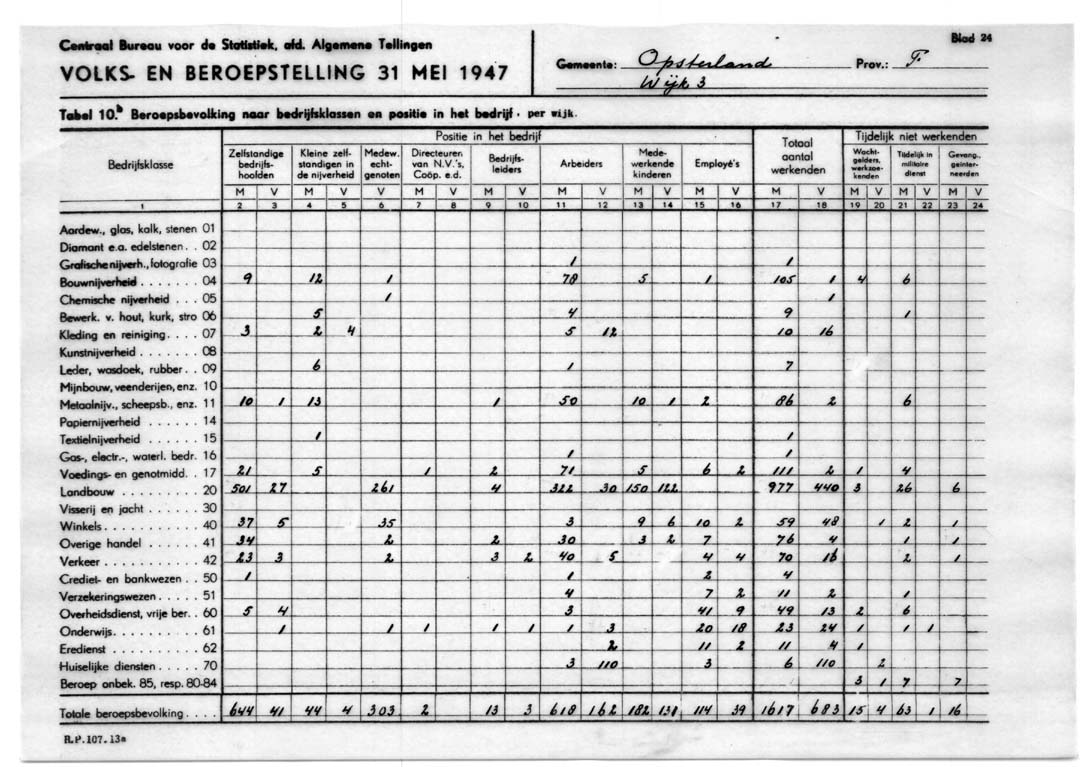 Centraal Bureau voor de Statistiek, afd. Algemene Tellingen
Blad 24
VOLKS- EN BEROEPSTELLING 31 MEI 1947
Gemeente: Opsterland Prov.: F.
Wijk 3
Tabel 10.b Beroepsbevolking naar bedrijfsklassen en positie in het bedrijf. per wijk.
Bedrijfsklasse | Positie in het bedrijf | Totaal aantal werkenden | Tijdelijk niet werkenden
Zelfstandige bedrijfs-hoofden | Kleine zelf-standigen in de nijverheid | Medew. echt-genoten | Directeuren van N.V.'s, Coöp. e.d. | Bedrijfs-leiders | Arbeiders | Mede-werkende kinderen | Employé's | Wacht-gelders, werkzoe-kenden | Tijdelijk in militaire dienst | Gevang., geïnter-neerden
M V M V V M V M V M V M V M V M V M V M V M V
1 2 3 4 5 6 7 8 9 10 11 12 13 14 15 16 17 18 19 20 21 22 23 24
Aardew., glas, kalk, stenen 01
Diamant e.a. edelstenen . . 02
Grafische nijverh., fotografie 03 1 1
Bouwnijverheid . . . . . . . 04 9 12 1 78 5 1 105 1 4 6
Chemische nijverheid . . . 05 1 1
Bewerk. v. hout, kurk, stro 06 5 4 9 1
Kleding en reiniging . . . . 07 3 2 4 5 12 10 16
Kunstnijverheid . . . . . . . 08
Leder, wasdoek, rubber . . 09 6 1 7
Mijnbouw, veenderijen, enz. 10
Metaalnijv., scheepsb., enz. 11 10 1 13 1 50 10 1 2 86 2 6
Papiernijverheid . . . . . . 14
Textielnijverheid . . . . . . 15 1 1
Gas-, electr.-, waterl. bedr. 16 1 1
Voedings- en genotmidd. . 17 21 5 1 2 71 5 6 2 111 2 1 4
Landbouw . . . . . . . . . 20 501 27 261 4 322 30 150 122 977 440 3 26 6
Visserij en jacht . . . . . . 30
Winkels . . . . . . . . . . 40 37 5 35 3 9 6 10 2 59 48 1 2 1
Overige handel . . . . . . . 41 34 2 2 30 3 2 7 76 4 1 1
Verkeer . . . . . . . . . . 42 23 3 2 3 2 40 5 4 4 70 16 2 1
Crediet- en bankwezen . . 50 1 1 2 4
Verzekeringswezen . . . . . 51 4 7 2 11 2 1
Overheidsdienst, vrije ber. . 60 5 4 3 41 9 49 13 2 6
Onderwijs . . . . . . . . . 61 1 1 1 1 1 1 3 20 18 23 24 1 1 1
Eredienst . . . . . . . . . 62 2 11 2 11 4 1
Huiselijke diensten . . . . . 70 3 110 3 6 110 2
Beroep onbek. 85, resp. 80-84 3 1 7 7
Totale beroepsbevolking . . . . 644 41 44 4 303 2 13 3 618 162 182 131 114 39 1617 683 15 4 63 1 16
R.P.107.13a